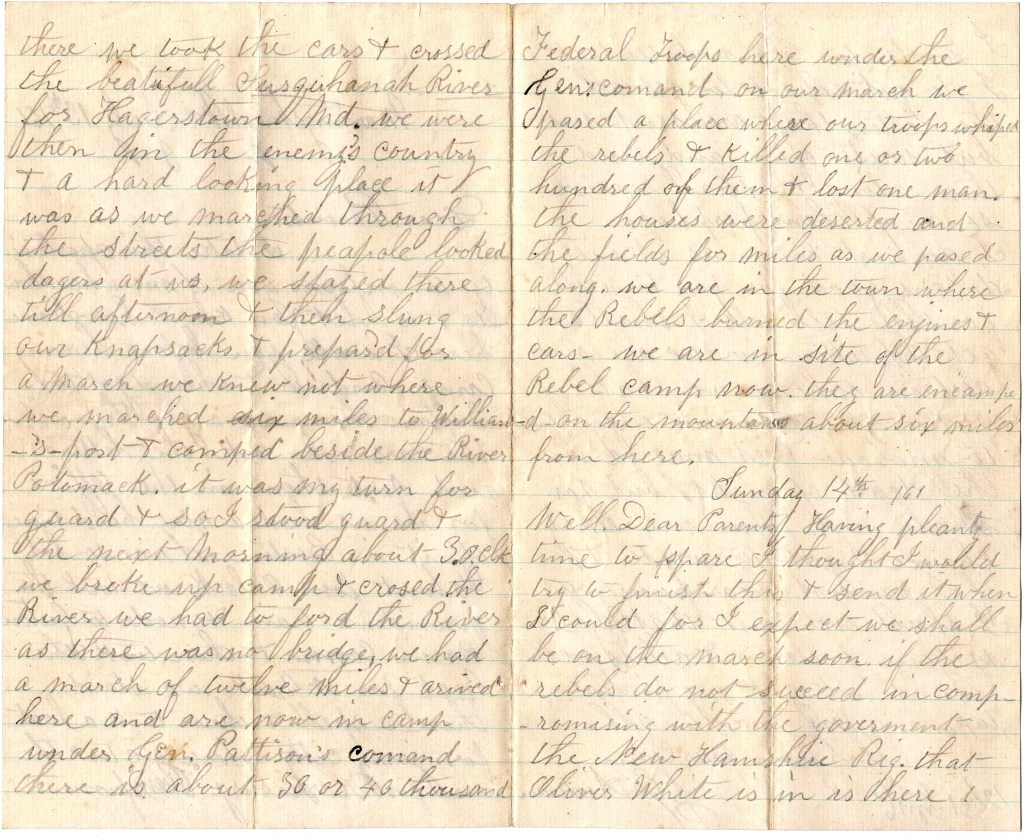 there we took the cars & crossed
the beatifull Susquhanah River
for Hagerstown Md. we were
then in the enemy's country
& a hard looking place it
was as we marched through
the streets the peapole looked
dagers at us, we stated there
till afternoon & then slung
our Knapsacks & prepard for
a march we knew not where
we marched six miles to William-
-'s-port & camped beside the River
Potomack. it was my turn for
guard & so I stood guard &
the next morning about 3.o.clk
we broke up camp & crosed the
River we had to ford the River
as there was no bridge, we had
a march of twelve miles & arived
here and are now in camp
under Gen. Pattison's comand
there is about 30 or 40 thousand
Federal Troops here under the
Gens comand on our march we
pased a place where our troops whiped
the rebels & killed one or two
hundred of them & lost one man.
the houses were deserted and
the fields for miles as we pased
along. we are in the town where
the Rebels burned the engines &
cars- we are in site of the
Rebel camp now. they are encampe
-d- on the mountains about six miles
from here.
Sunday 14th /61
Well Dear Parents, Having pleanty
time to spare I thought I would
try to finish this & send it when
I could for I expect we shall
be on the march soon. if the
rebels do not succeed in comp-
-romising with the goverment
the New Hamshire Rig. that
Oliver White is in is here